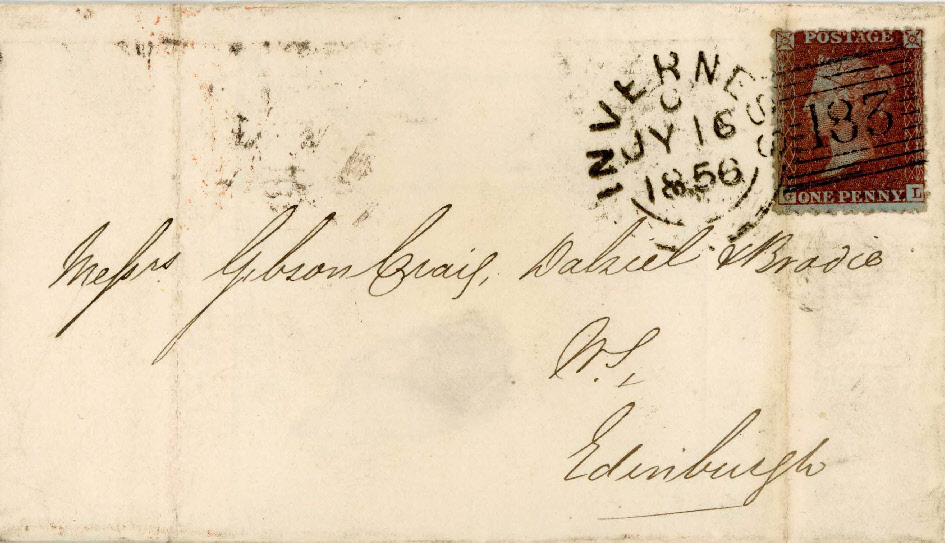 POSTAGE
INVERNESS
C
JY 16
1856
183
G ONE PENNY. L
Messrs Gibson Craig, Dalziel & Brodie
W.S,
Edinburgh